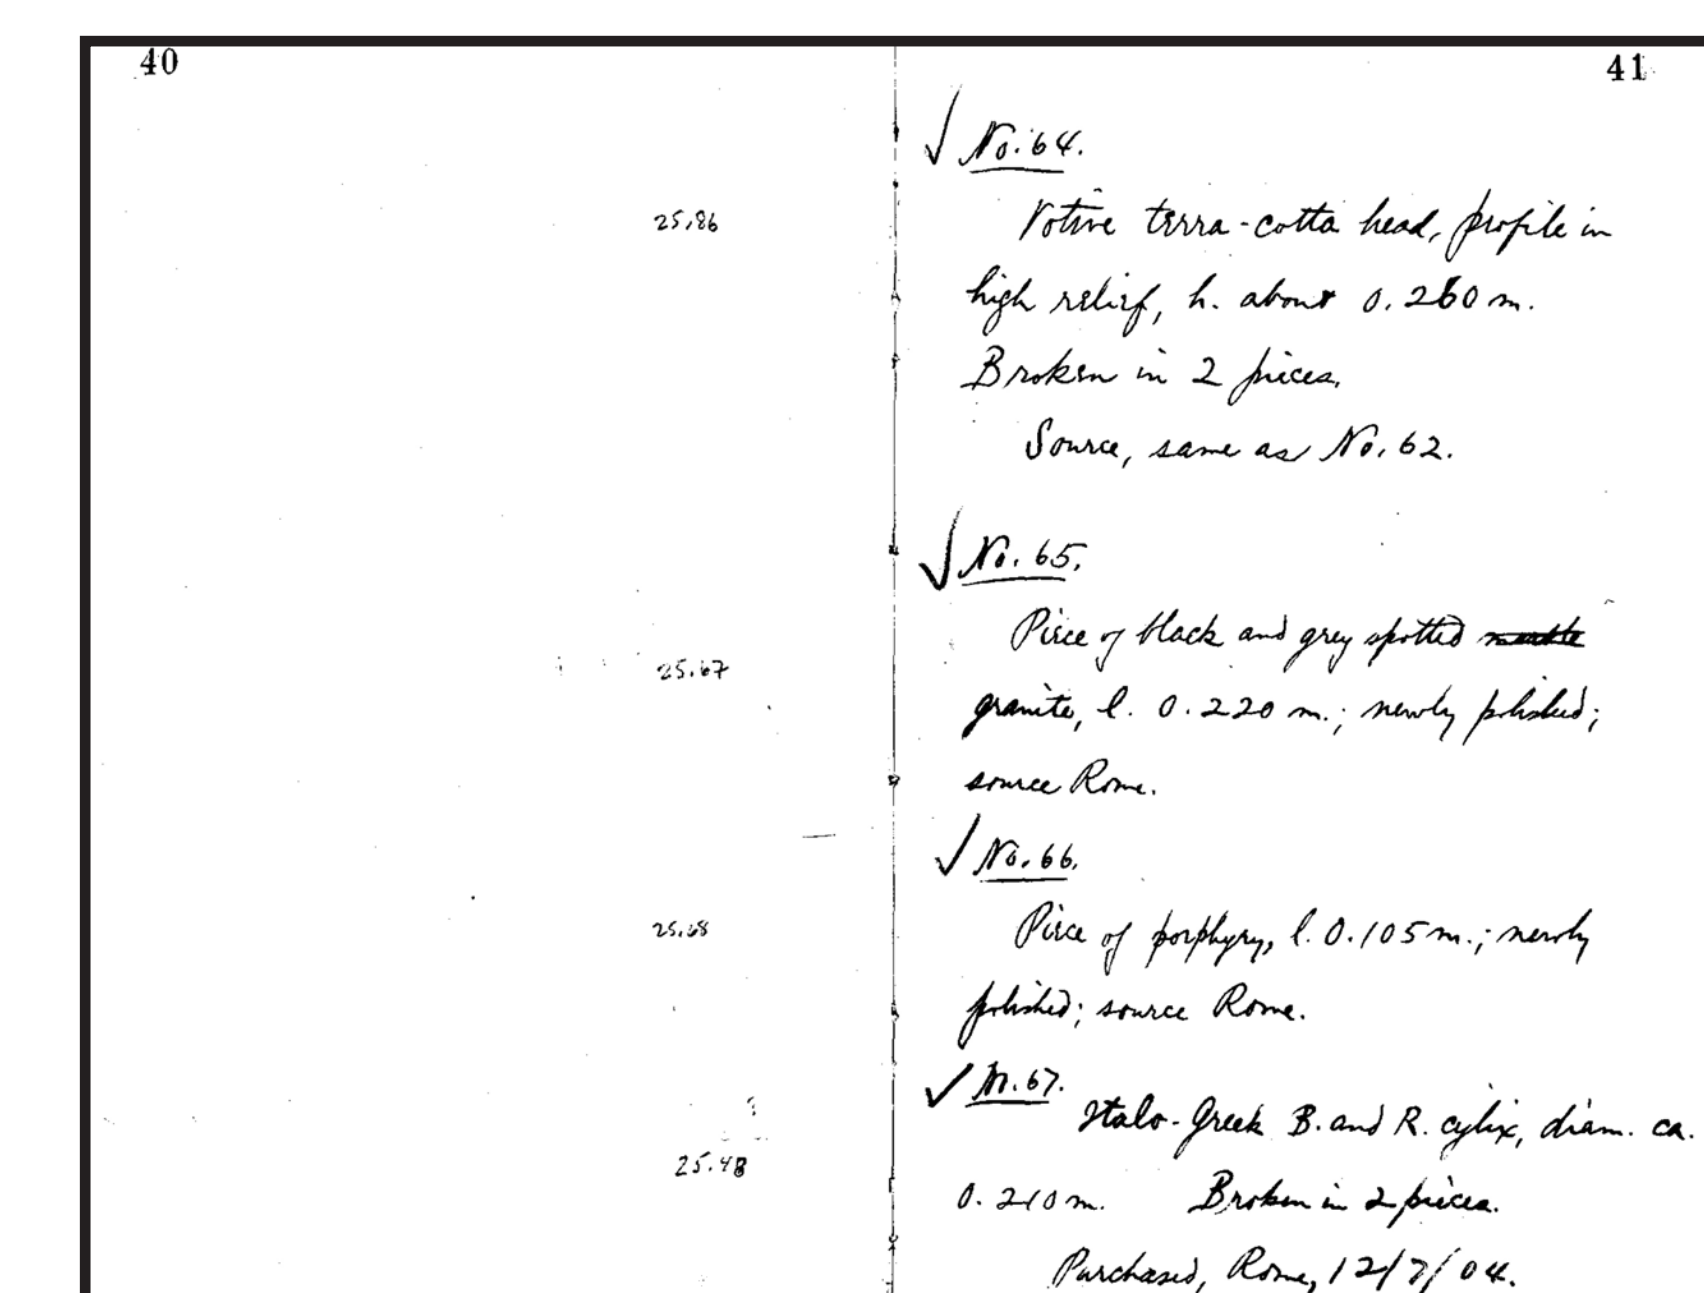 40
41
No. 64.
25.86
Votive terra-cotta head, profile in
high relief, h. about 0.260 m.
Broken in 2 pieces.
Source, same as No. 62.
No. 65.
Piece of black and grey spotted marble
25.67
granite, l. 0.220 m.; newly polished;
source Rome.
No. 66.
25.68
Piece of porphyry, l. 0.105 m.; newly
polished; source Rome.
No. 67.
Italo-Greek B. and R. cylix, diam. ca.
25.48
0.210 m. Broken in 2 pieces.
Purchased, Rome, 12/7/04.